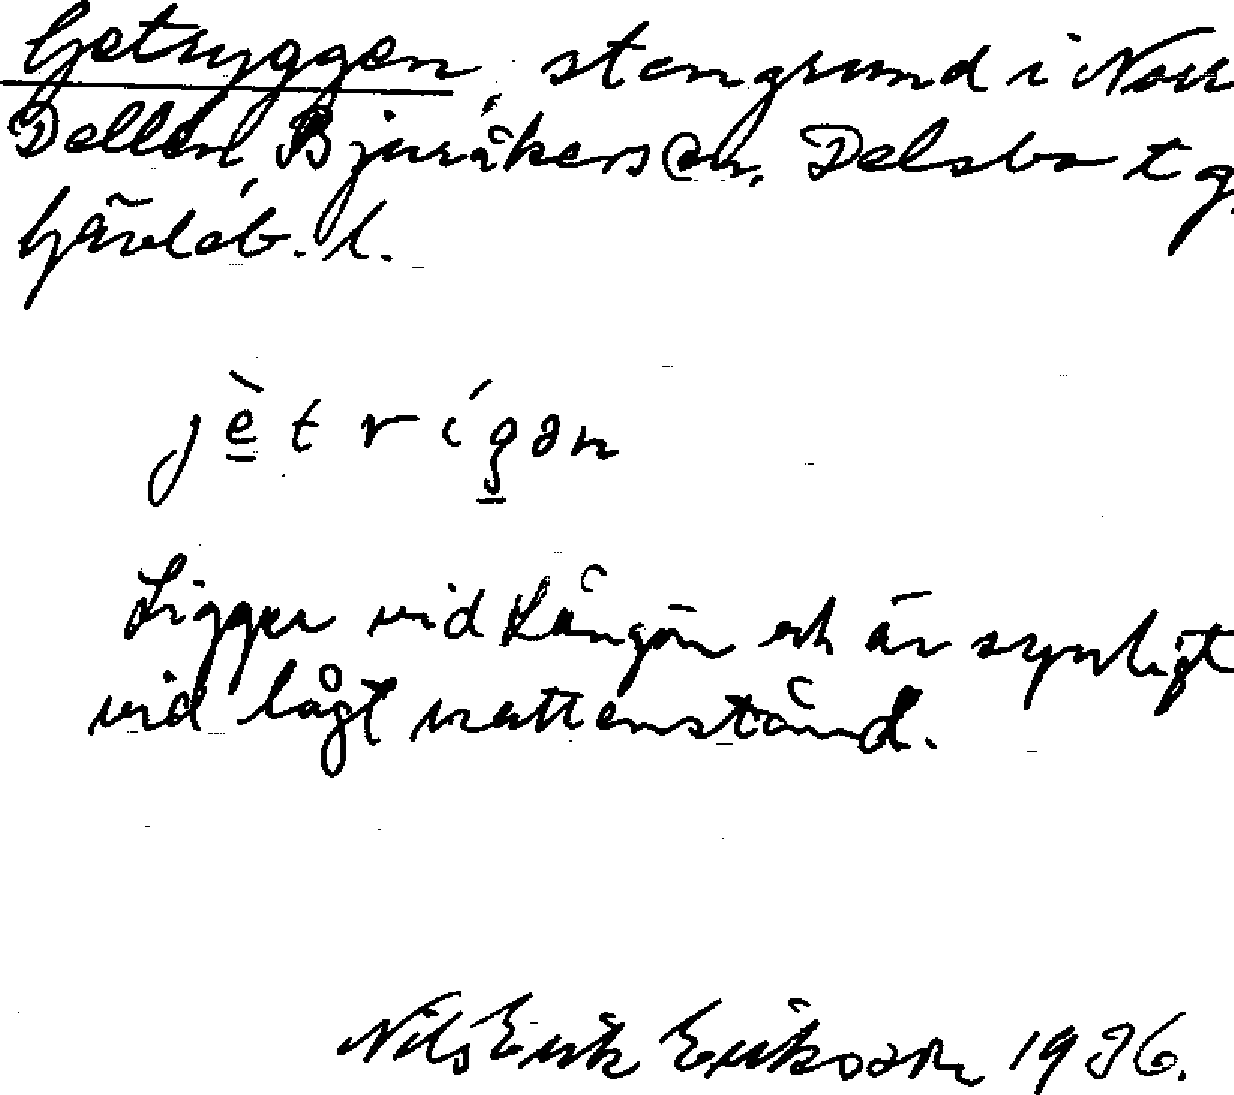 Getryggen, stengrund i Norr
Dellen, Bjuråkers sn, Delsbo tg
Gävleb. l.
jè̱t rígən
Ligger vid Långön och är synligt
vid lågt vattenstånd.
Nils Erik Eriksson 1936.